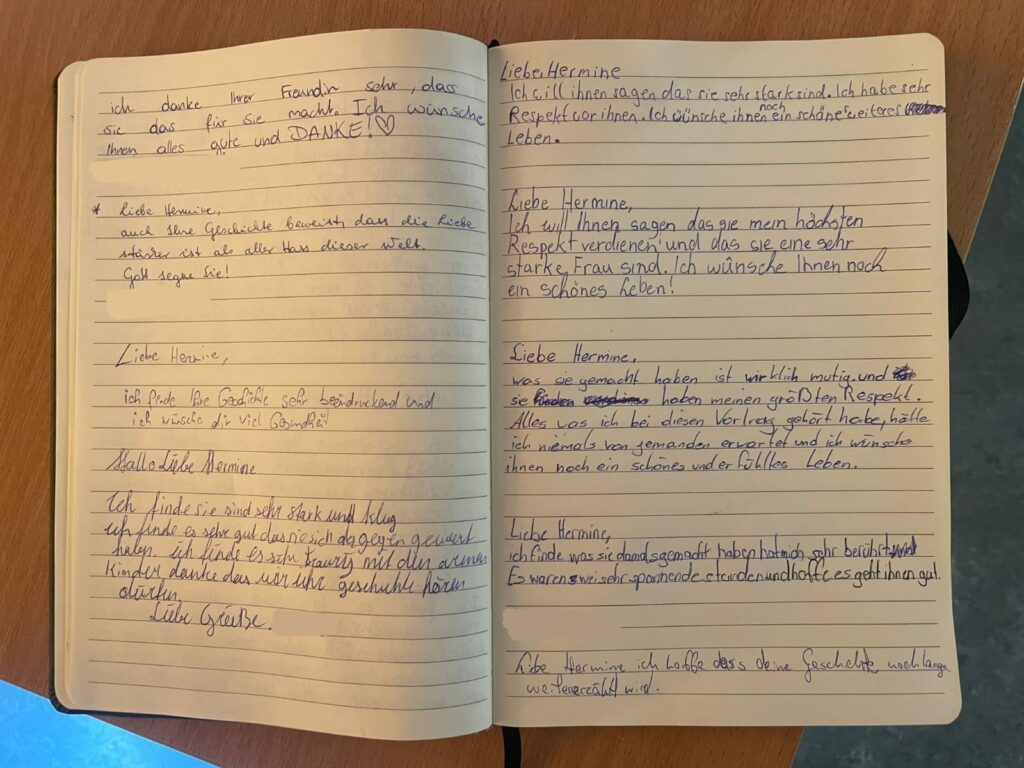 ich danke Ihrer Freundin sehr, dass
sie das für Sie macht. Ich wünsche
Ihnen alles gute und DANKE!♡
* Liebe Hermine,
auch Ihre Geschichte beweist, dass die Liebe
stärker ist als aller Hass dieser Welt.
Gott segne Sie!
Liebe Hermine,
ich finde Ihre Geschichte sehr beeindruckend und
ich wünsche dir viel Gesundheit
Hallo Liebe Hermine
Ich finde sie sind sehr stark und klug
ich finde es sehr gut das sie sich dagegen gewert
haben. ich finde es sehr traurig mit den armen
Kinder danke das wir ihr geschichte hören
dürfen.
Liebe Grüße.
Liebe Hermine
Ich will ihnen sagen das sie sehr stark sind. Ich habe sehr
Respekt vor ihnen. Ich wünsche ihnen noch ein schönes weiteres
Leben.
Liebe Hermine,
Ich will Ihnen sagen das sie mein höchsten
Respekt verdienen und das sie eine sehr
starke Frau sind. Ich wünsche Ihnen noch
ein schönes Leben!
Liebe Hermine,
was sie gemacht haben ist wirklich mutig und
sie haben meinen größten Respekt.
Alles was, ich bei diesen Vortrag gehört habe, hätte
ich niemals von jemanden erwartet und ich wünsche
ihnen noch ein schönes und erfülltes Leben.
Liebe Hermine,
ich finde was sie damals gemacht haben hat mich sehr berührt
Es waren zwei sehr spannende stunden und hoffe es geht ihnen gut.
Liebe Hermine ich hoffe dass deine Geschichte noch lange
weitererzählt wird.